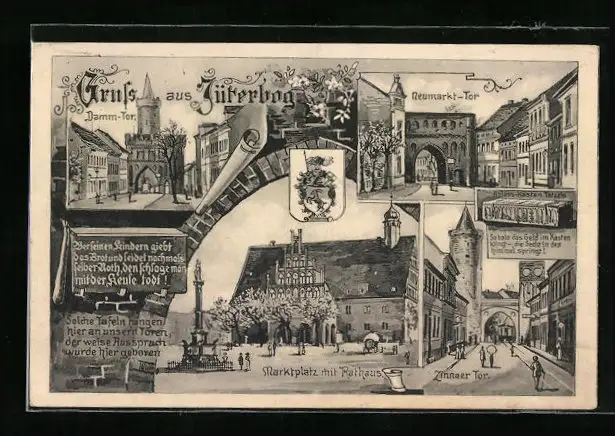 Gruss aus Jüterbog
Damm-Tor.
Neumarkt-Tor
Wer seinen Kindern giebt
das Brot und leidet nachmals
selber Noth, den schlage man
mit der Keule todt!
Solche Tafeln hingen
hier an unsern Toren,
der weise Ausspruch
wurde hier geboren
Kasten Tetzels
Sobald das Geld im Kasten
klingt - die Seele in den
Himmel springt!
Marktplatz mit Rathaus
Zinnaer Tor.